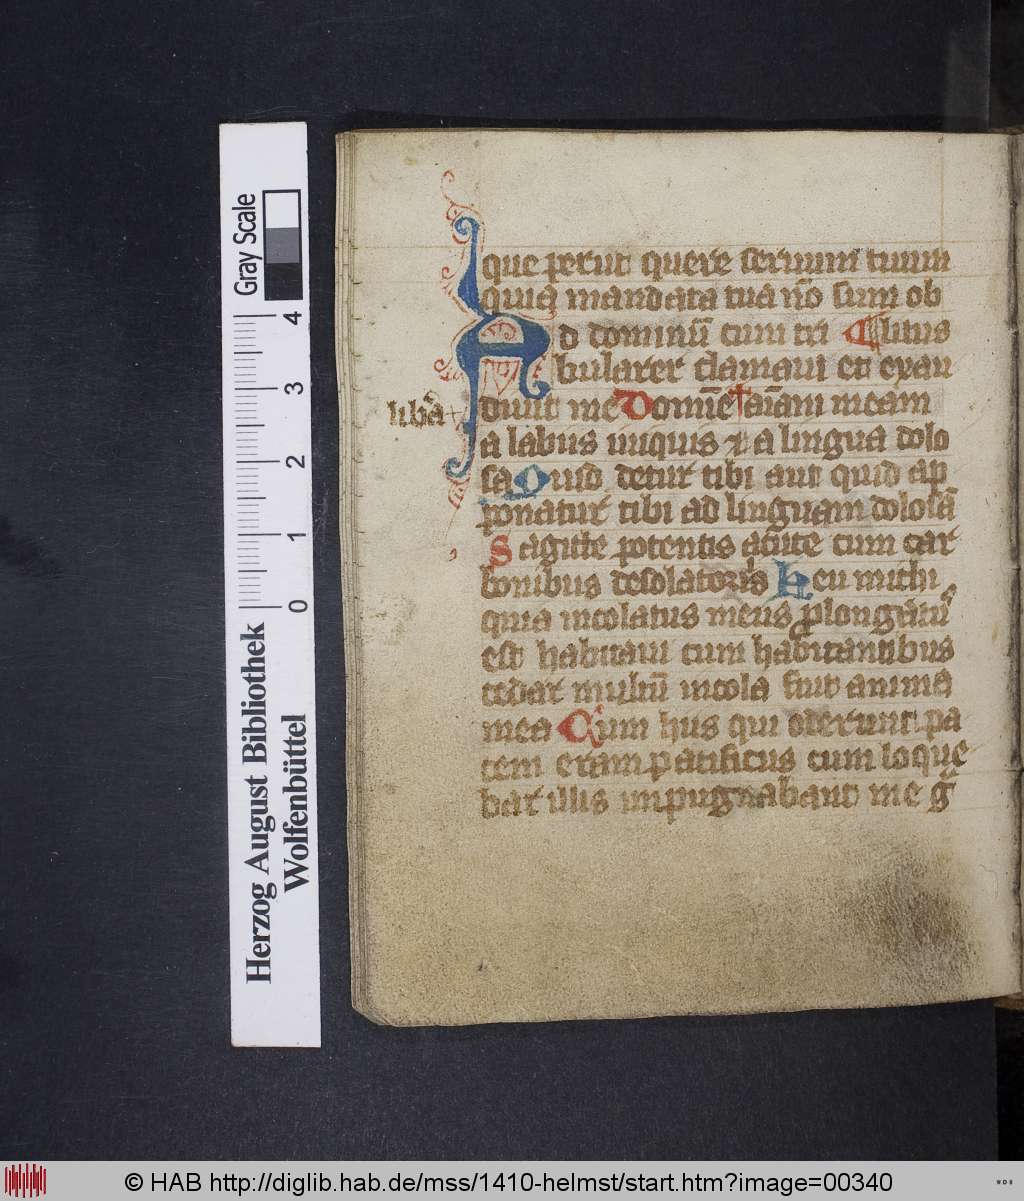 que periit quere seruum tuum
quia mandata tua nō sum ob
Ad dominū cum tri ¶ litus
bularer clamaui et exau
diuit me Domīe † aīam meam
libā +
a labiis iniquis et a lingua dolo
sa Quid detur tibi aut quid ap
ponatur tibi ad linguam dolosā
Sagitte potentis acute cum car
bonibus desolatoriis Heu michi
quia incolatus meus plongatū
est habitaui cum habitantibus
cedar multū incola fuit anima
mea Cum hiis qui oderunt pa
cem eram pacificus cum loque
bar illis inpugnabant me g
Gray Scale
0 1 2 3 4
Herzog August Bibliothek
Wolfenbüttel
© HAB http://diglib.hab.de/mss/1410-helmst/start.htm?image=00340